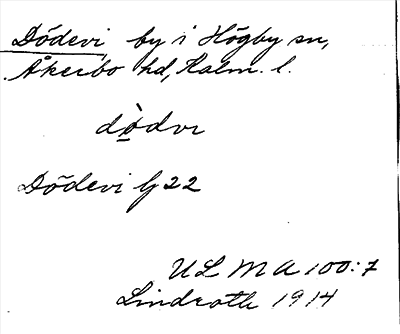 Dödevi, by i Högby sn,
Åkerbo hd, Kalm. l.
dò̲dvı
Dödevi G 22
ULMA 100:7
Lindroth 1914